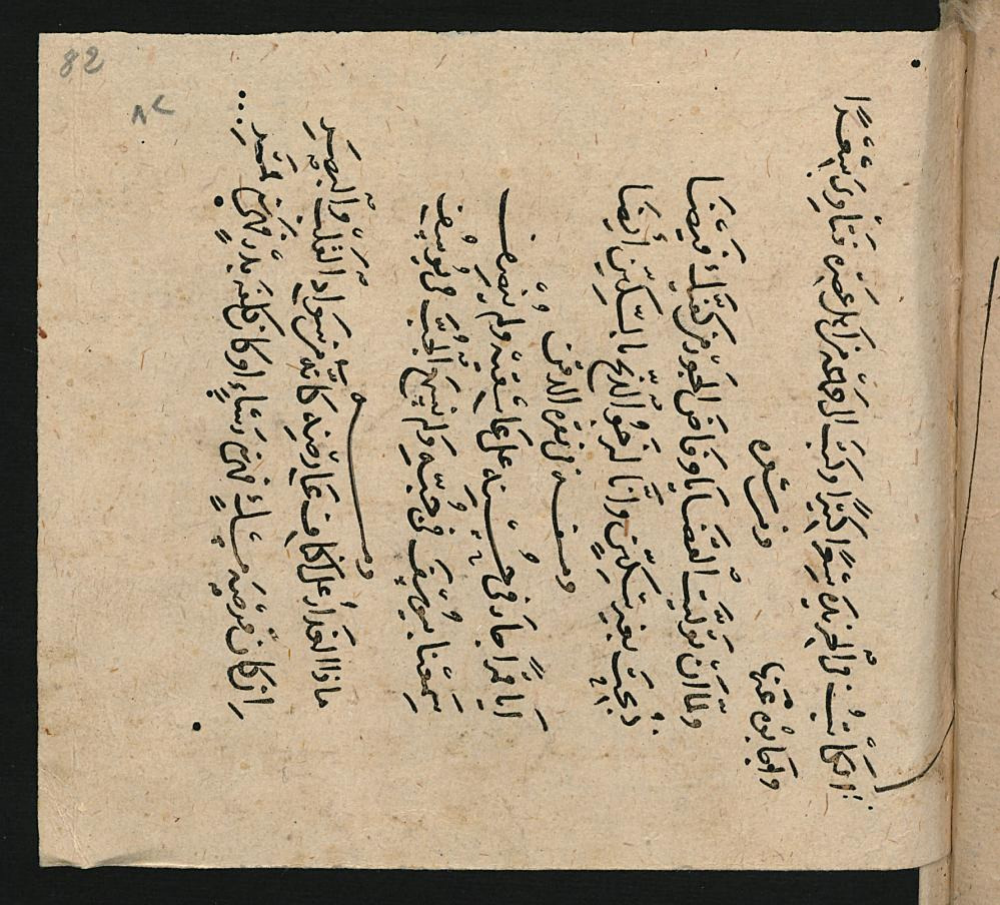 الكاتب في شعرًا كثيرًا وكتب الى جماعة من اهل عصره فتاوى شعرًا
واجابوه عنها ومن شعره
ولما ان توليت القضايا وفاض الجور من كفيك فيضا
ذبحت بغير سكين وانا لنرجو الذبح بالسكين ايضا
ومنه في
ايا قمرًا جار في حسنه على عاشقيه ولم ينصف
سمعنا بيوسف في جبه ولم نسمع الجب في يوسف
ومنه
ماذا العذار على كافور عارضه كانه من سواد القلب والبصر
ان كان مسك فمن رشاء او كان كلفة بدر فهي من قمر
82
٨٢